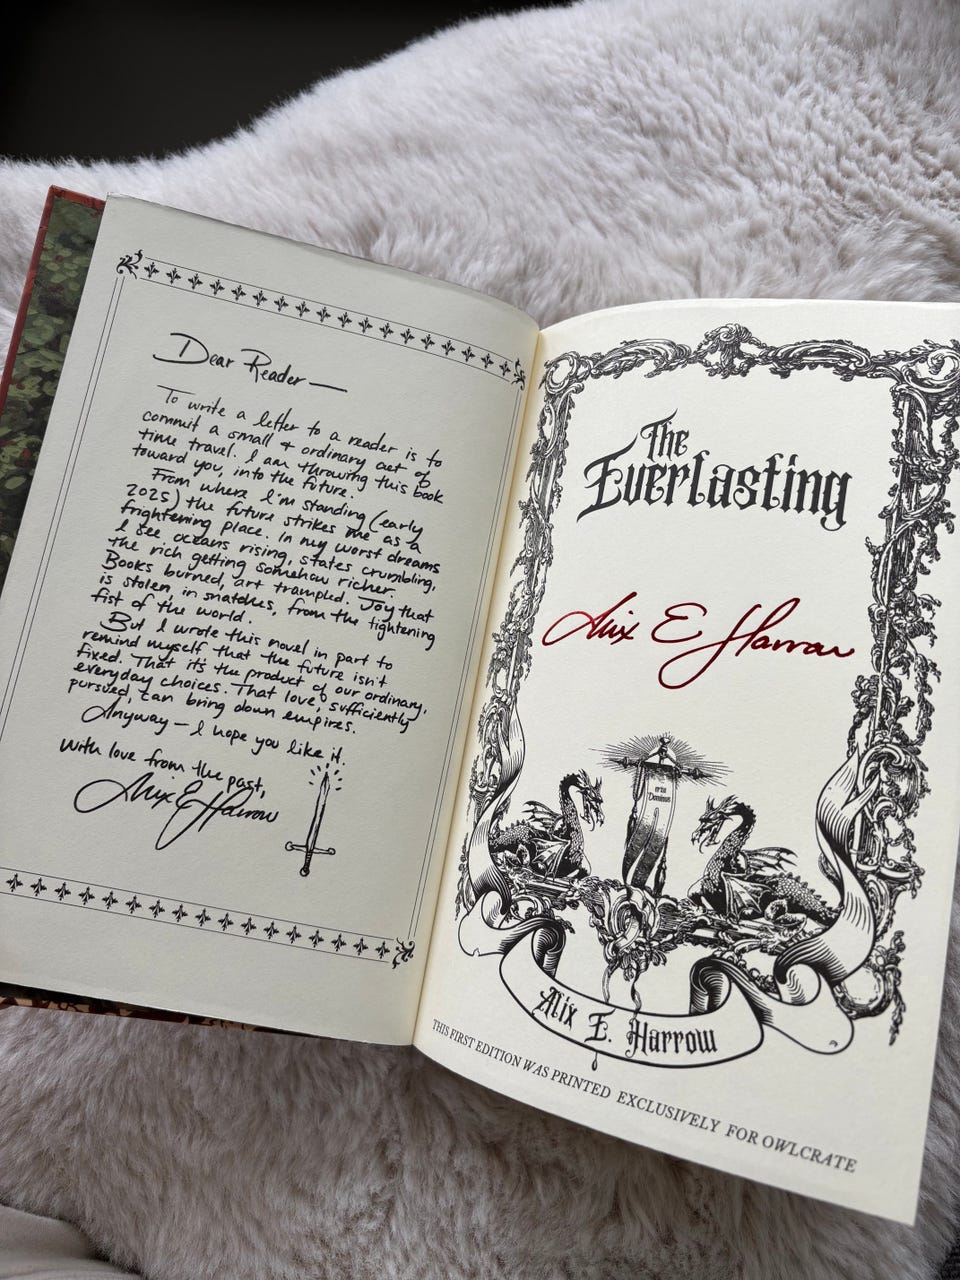 Dear Reader—
To write a letter to a reader is to
commit a small + ordinary act of
time travel. I am throwing this book
toward you, into the future.
From where I'm standing (early
2025) the future strikes me as a
frightening place. In my worst dreams
I see oceans rising, states crumbling,
the rich getting somehow richer.
Books burned, art trampled. Joy that
is stolen, in snatches, from the tightening
fist of the world.
But I wrote this novel in part to
remind myself that the future isn't
fixed. That it's the product of our ordinary,
everyday choices. That love, sufficiently
pursued, can bring down empires.
Anyway— I hope you like it.
With love from the past,
Alix E Harrow
The
Everlasting
Alix E Harrow
erza
Dominus
Alix E. Harrow
THIS FIRST EDITION WAS PRINTED EXCLUSIVELY FOR OWLCRATE